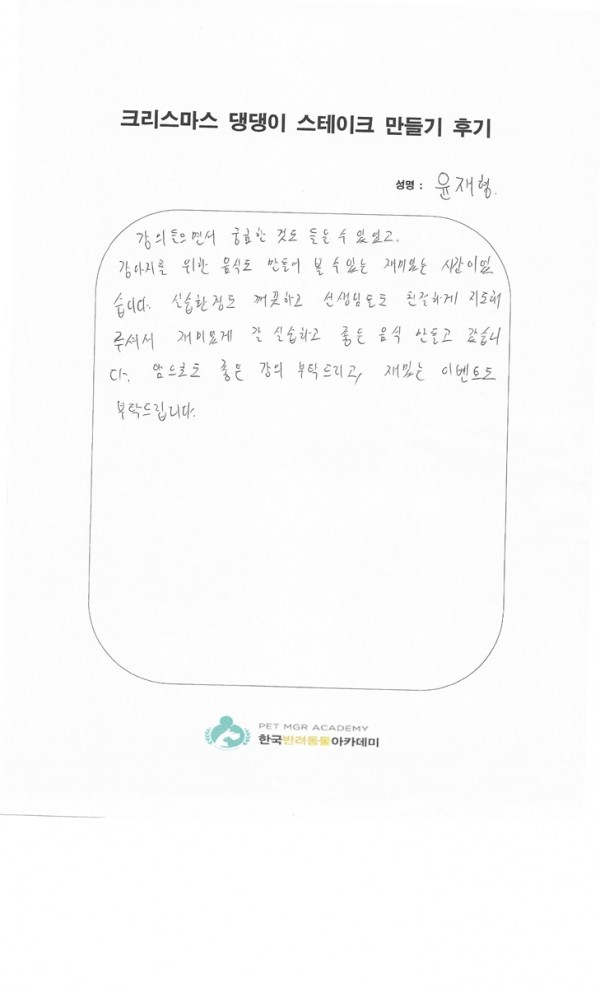 크리스마스 댕댕이 스테이크 만들기 후기
성명 : 윤재형.
강의 들으면서 궁금한 것도 들을 수 있었고.
강아지를 위한 음식도 만들어 볼 수 있는 재미있는 시간이었
습니다. 실습환경도 깨끗하고 선생님들도 친절하게 지도해
주셔서 재미있게 잘 실습하고 좋은 음식 만들고 갔습니
다. 앞으로도 좋은 강의 부탁드리고, 재밌는 이벤트도
부탁드립니다.
PET MGR ACADEMY
한국반려동물아카데미